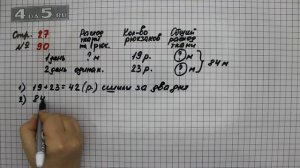 4 на 5.ru
Стр. 27
№ 90
Расход ткани на 1 рюк.
Кол-во рюкзаков
Общий расход ткани
1 день ? м 19 р. ? м
2 день одинак. 23 р. ? м
84 м
1) 19 + 23 = 42 (р.) сшили за два дня
2) 84